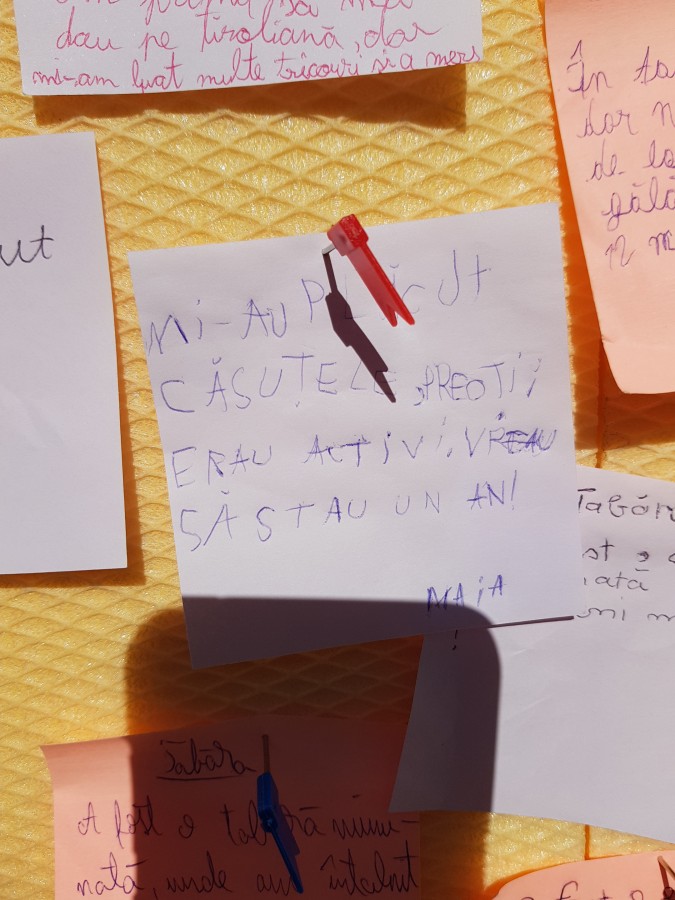 dau pe tiroliană, dar
mi-am luat multe tricouri și a mers
ut
În
dar
de
MI-AU PLĂCUT
CĂSUȚELE, PREOȚII
ERAU ACTIVI, VREAU
SĂ STAU UN AN!
MAIA
!
Tabăr
Tabăra
A fost o tabără minu-
nată, unde am întâlnit